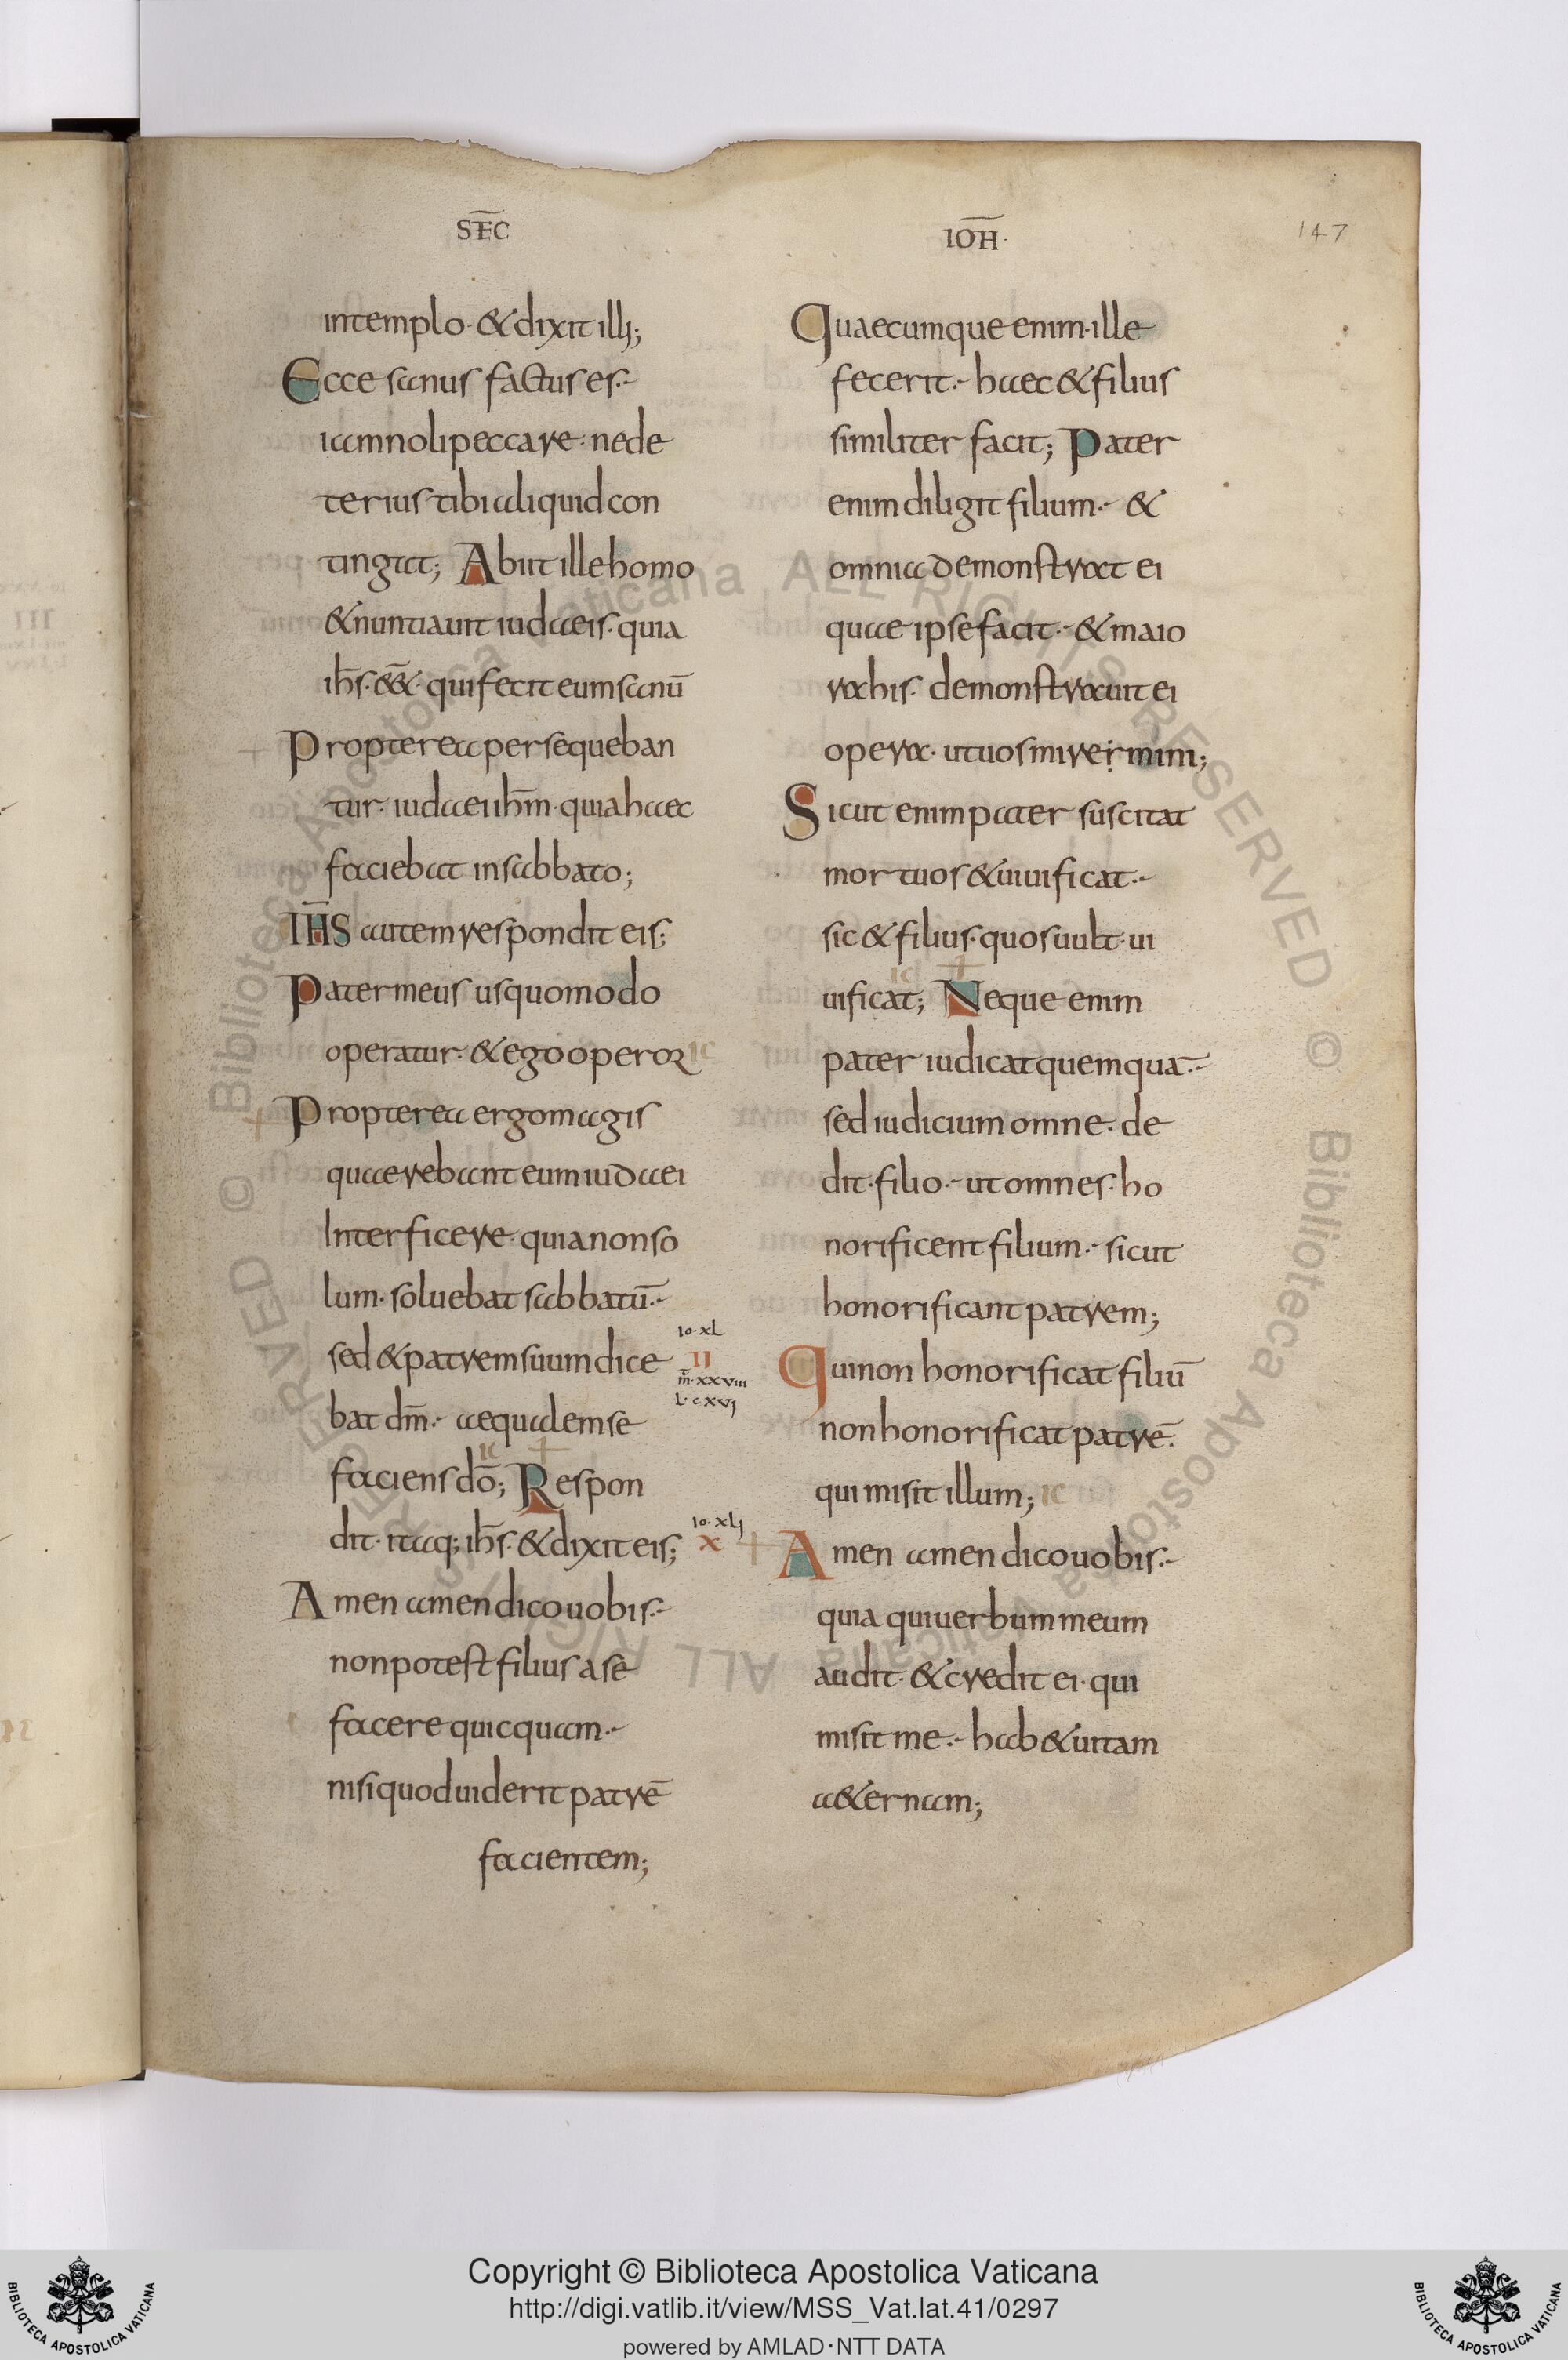 SEC̅
IOH̅·
147
intemplo· &dixit illi;
Ecce sanus factus es·-
iamnolipeccare· nede
terius tibi aliquid con
tingat; Abiit ille homo
&nuntiauit iudaeis· quia
ih̅s· ee̅· qui fecit eum sanu̅
Propterea persequeban
tur· iudaei ih̅m· quia haec
faciebat in sabbato;
IH̅S autem respondit eis;
Pater meus usquomodo
operatur· &ego operor
Propterea ergo magis
quaerebant eum iudaei
Interficere· quia non so
lum· soluebat sabbatu̅·-
sed &patrem suum dice
bat dm̅·- aequalem se
faciens do̅; Respon
dit· itaq; ih̅s· &dixit eis;
Amen amen dico uobis·-
non potest filius a se
facere quicquam·-
nisi quod uiderit patre̅
facientem;
Io·xl
II
m̅·xxviii
L·cxvi
Io·xli
x
Quaecumque enim· ille
fecerit·- haec &filius
similiter facit; Pater
enim diligit filium·- &
omnia demonstrat ei
quae ipse facit·- &maio
ra his· demonstrauit ei
opera· ut uos miremini;
Sicut enim pater suscitat
mortuos &uiuificat·-
sic &filius· quos uult· ui
uificat; Neque enim
pater iudicat quemqua̅·-
sed iudicium omne· de
dit· filio·- ut omnes· ho
norificent filium·- sicut
honorificant patrem;
Qui non honorificat filiu̅
non honorificat patre̅·
qui misit illum;
Amen amen dico uobis·-
quia qui uerbum meum
audit· &credit ei· qui
misit me·- hab& uitam
a&ernam;
Copyright © Biblioteca Apostolica Vaticana
http://digi.vatlib.it/view/MSS_Vat.lat.41/0297
powered by AMLAD·NTT DATA
BIBLIOTECA APOSTOLICA VATICANA
BIBLIOTECA APOSTOLICA VATICANA
© Biblioteca Apostolica Vaticana ALL RIGHTS RESERVED
© Biblioteca Apostolica Vaticana ALL RIGHTS RESERVED